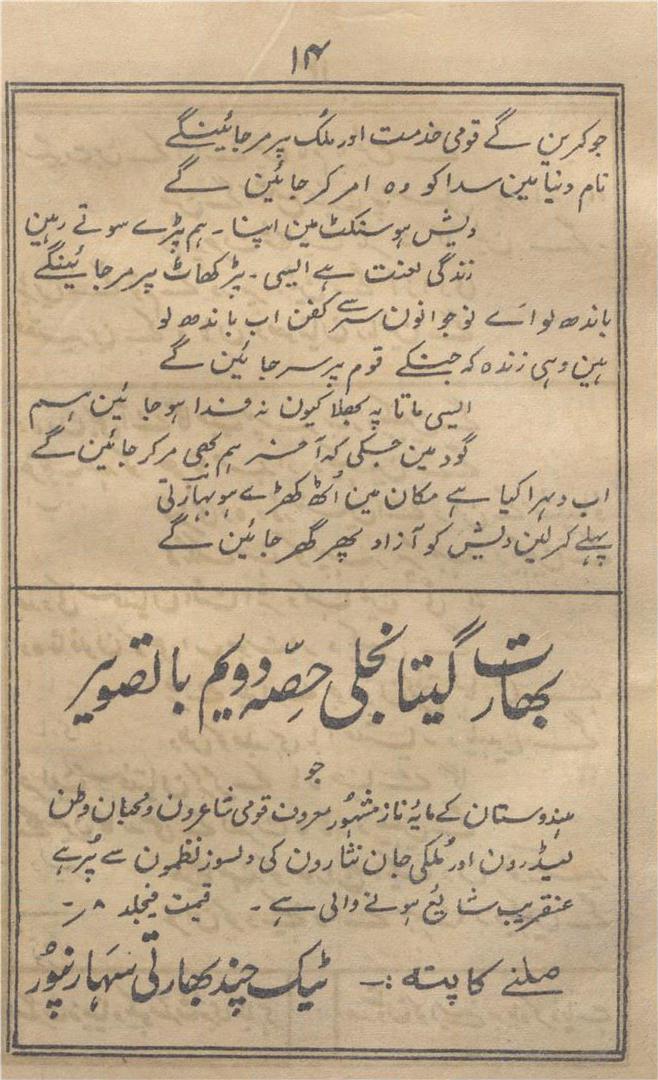 ۱۴
جو کرین گے قومی خدمت اور ملک پر مر جائینگے
نام دنیا مین سدا کو وہ امر کر جائین گے
دیش ہو سنکٹ مین اپنا۔ ہم پڑے سوتے رہین
زندگی لعنت ہے ایسی۔ پڑ کھاٹ پر مر جائینگے
باندھ لو اَے نوجوانون سر سے کفن اب باندھ لو
ہین وہی زندہ کہ جنکے قوم پر سر جائین گے
ایسی ماتا پہ بھلا کیون نہ فدا ہو جائین ہم
گود مین جسکی کہ آخر ہم بھی مر کر جائین گے
اب دہرا کیا ہے مکان مین اُٹھ کھڑے ہو بہارتی
پہلے کر لین دیش کو آزاد پھر گھر جائین گے
بھارت گیتا نجلی حصّہ دویم با تصویر
جو
ہندوستان کے مایۂ ناز مشہُور معروف قومی شاعرون و محبان وطن
لیڈرون اور مُلکی جان نثارون کی دلسوز نظمون سے پُر ہے
عنقریب شایٔع ہونے والی ہے ۔ قیمت فیجلد ۸؍
ملنے کا پتہ :۔ ٹیک چند بھارتی سَہارنپوُر